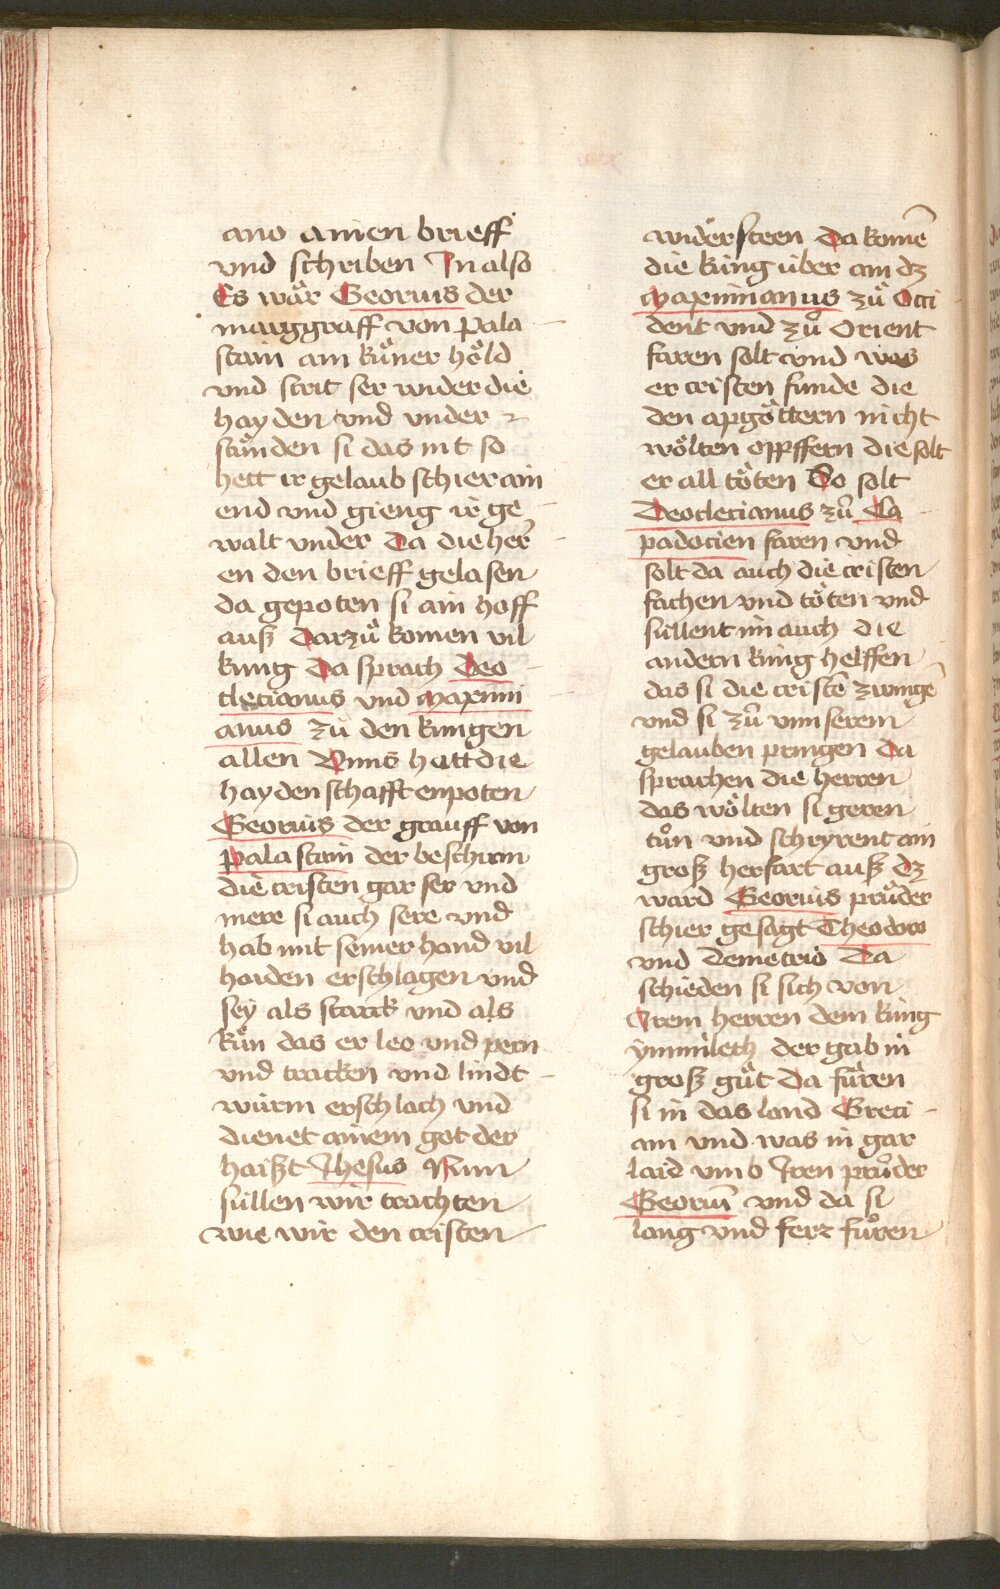 ano ainen brieff
vnd schriben In also
Es wär Georius der
marggraff von Pala
stain ain küner höld
vnd strit ser wider die
hayden vnd vnder
stünden si das nit so
hett ir gelaub schier ain
end vnd gieng ir ge
walt vnder Da die her̄
en den brieff gelasen
da gepoten si ain hoff
ausz Darzü komen vil
kung Da sprach Deo
cletianus vnd Maximi
anus zü den kungen
allen Vnns hett die
haydenschafft enpoten
Georius der grauff von
Palastain der beschirm
die cristen gar ser vnd
mere si auch sere vnd
hab mit seiner hand vil
haiden erschlagen vnd
sey als starck vnd als
kün das er leo vnd pern
vnd tracken vnd lindt
würm erschlach vnd
dienet ainem got der
haiszt Jhesus Nun
süllen wir trachten
wie wir den cristen
widersteen Da komē
die küng über ain dz
Maximianus zů Occi
dent vnd zů Orient
faren solt vnd was
er cristen funde die
den apgöttern nicht
wölten opffern die solt
er all töten So solt
Deocletianus zů Ca
padocien faren vnd
solt da auch die cristen
fachen vnd töten vnd
süllent im auch die
andern küng helffen
das si die cristē zwingē
vnd si zů vnnserem
gelauben pringen Da
sprachen die herren
das wölten si geren
tůn vnd schryrent ain
grosz herfart ausz dz
ward Georius prüder
schier gesagt Theodoro
vnd Demetrio Da
schieden si sich von
Irem herren dem küng
ymmilech der gab in
grosz gůt Da füren
si in das land Greci
am vnd was in gar
laid vmb Iren průder
Georiū vnd da si
lang vnd ferr fůren